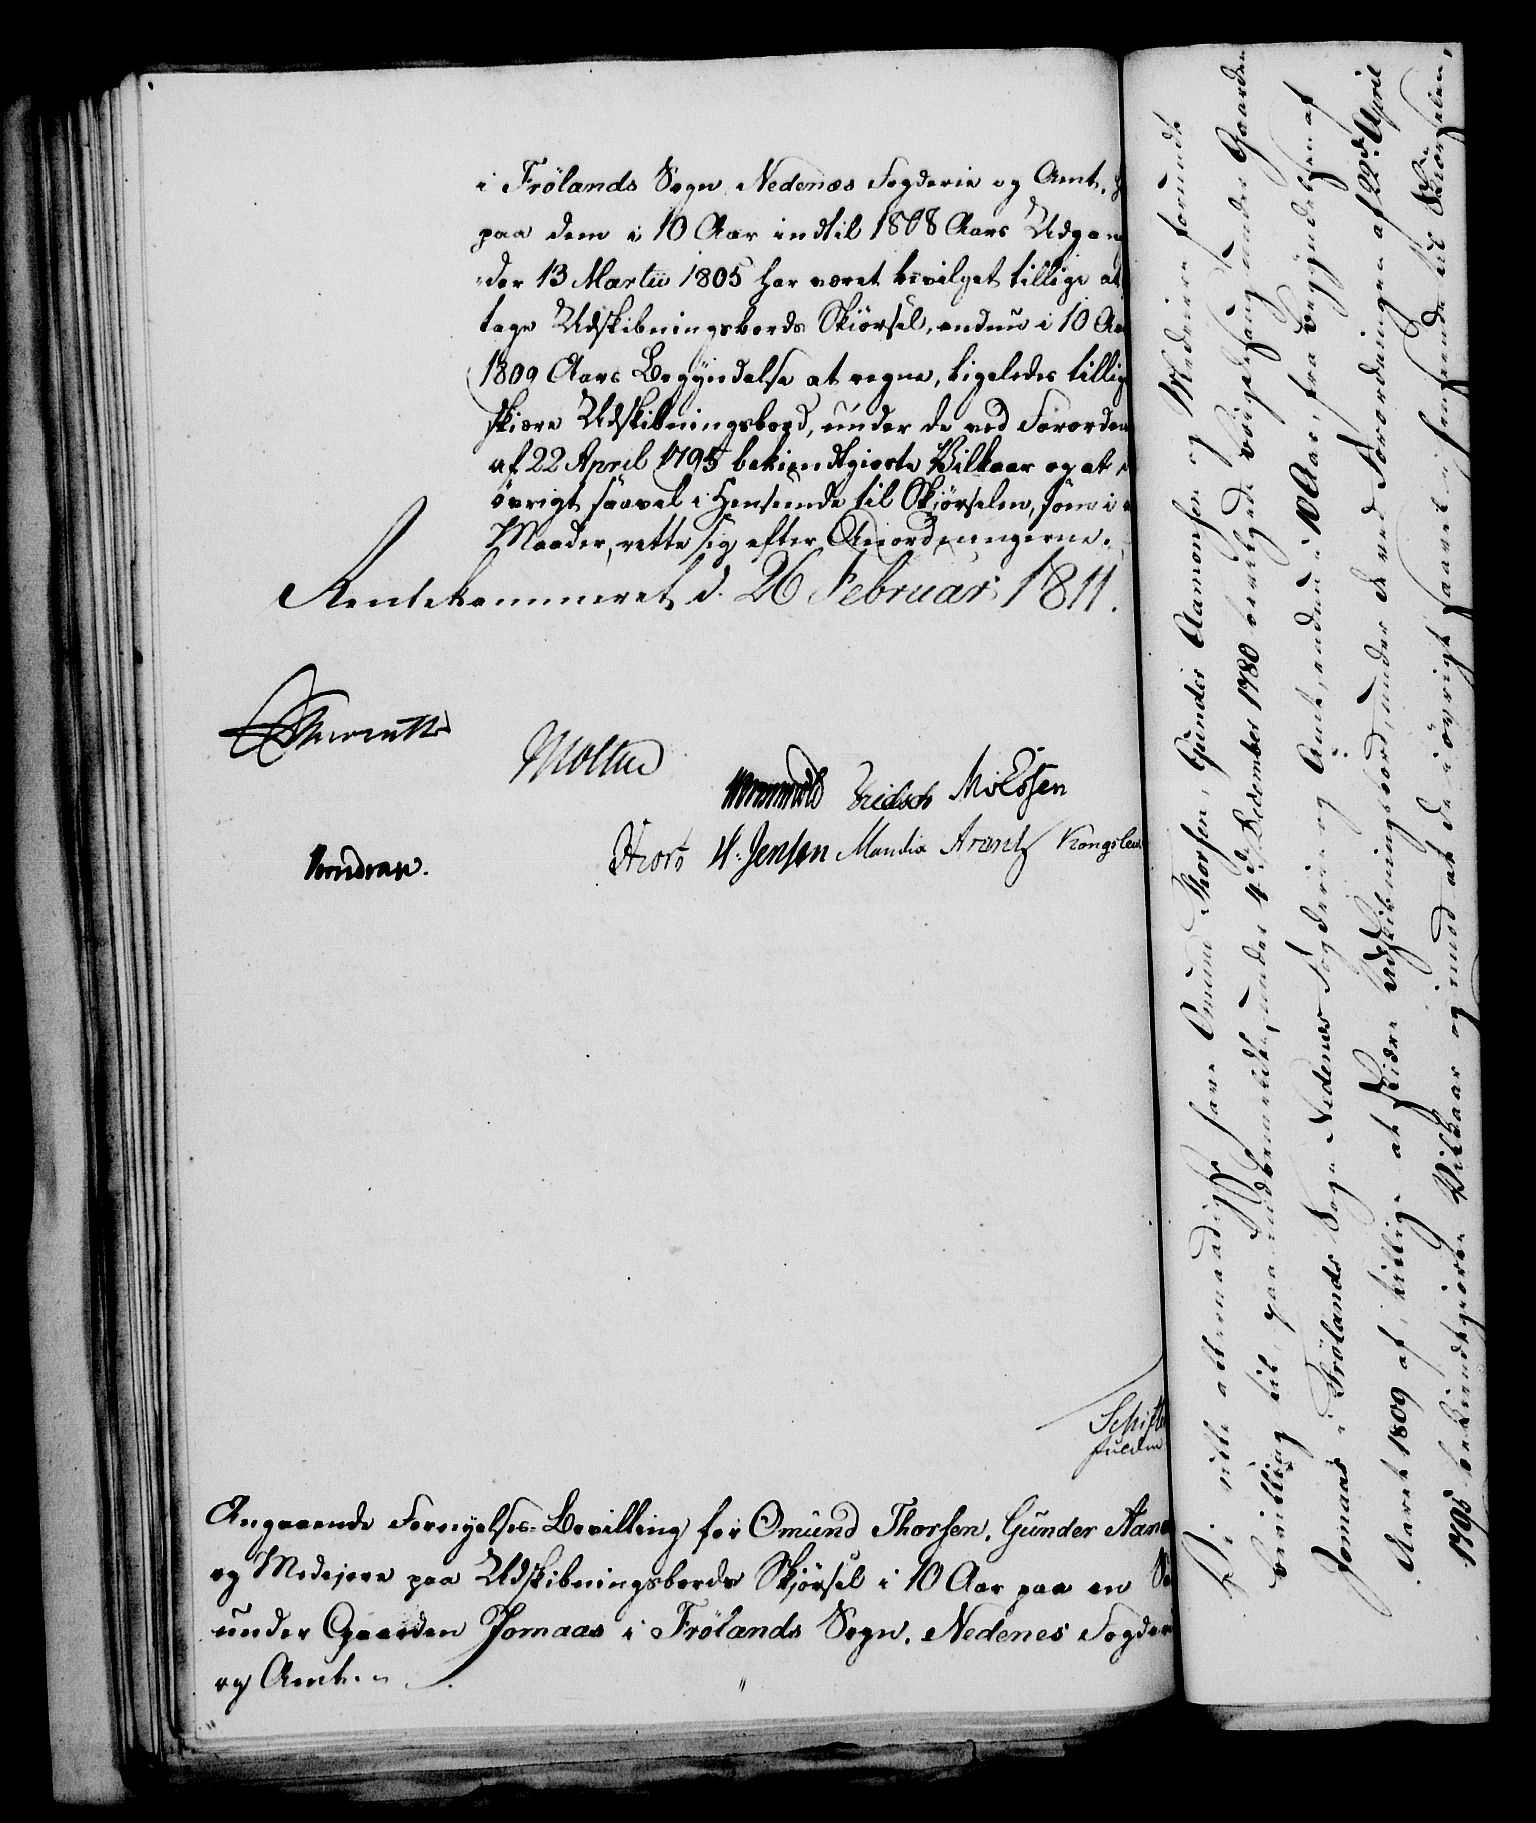 i Frölands Sogn Nedenæs Fogderie og Amt,
paa dem i 10 Aar indtil 1808 Aars Udgang
der 13 Martii 1805 har været bevilget tillige at
tage Udskibningsbords Skiörsel, endnu i 10 Aar
1809 Aars Begyndelse at regne, ligeledes tillige
skiære Udskibningsbord, under de ved Forordn
af 22 April 1795 bekiendtgiorte Vilkaar og at
övrigt saavel i Henseende til Skjörselen, som i
Maader, rette sig efter Anordningerne.
Rentekammeret d. 26 Februar 1811.
Moltke
Wormskiold Fridsch Monssen
Hiort H: Jensen Manthe Arentz Kongslew
Schifter
fuldm
Angaaende Fornyelses-Bevilling for Omund Thorsen, Gunder Aam
og Medejere paa Udskibningsbords Skjörsel i 10 Aar paa en
under Gaarden Jomaas i Frölands Sogn, Nedenes Fogder
og Amt.
Vi ville allernaadigst have Omund Thorsen, Gunder Aamonsen og Medeiere forundt
bevilling til, paa under 4de December 1780 bevilgede under Gaarden
Jomaas i Frölands Sogn Nedenæs Fogderie og Amt, endnu i 10 Aar, fra Begyndelsen af
Aaret 1809 af, tillige at skiære Udskibningsbord, under de ved Forordningen af 22de April
1795 bekiendtgiorte Vilkaar og imod at de i övrigt saavel i Henseende til Skiörselen,